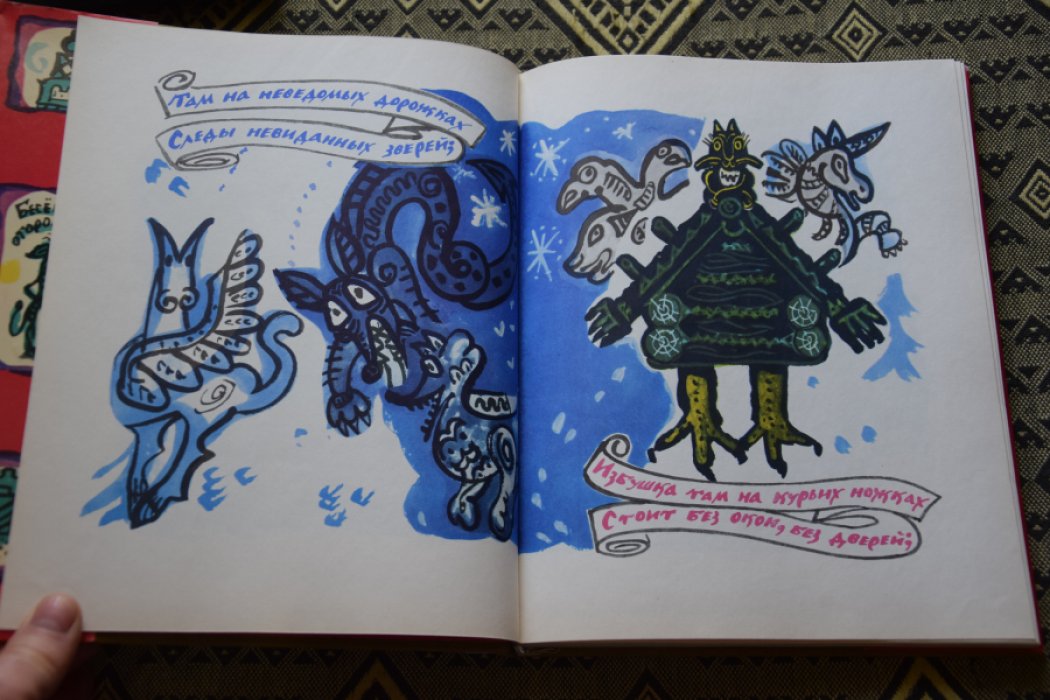 Там на неведомых дорожках
Следы невиданных зверей;
Избушка там на курьих ножках
Стоит без окон, без дверей;